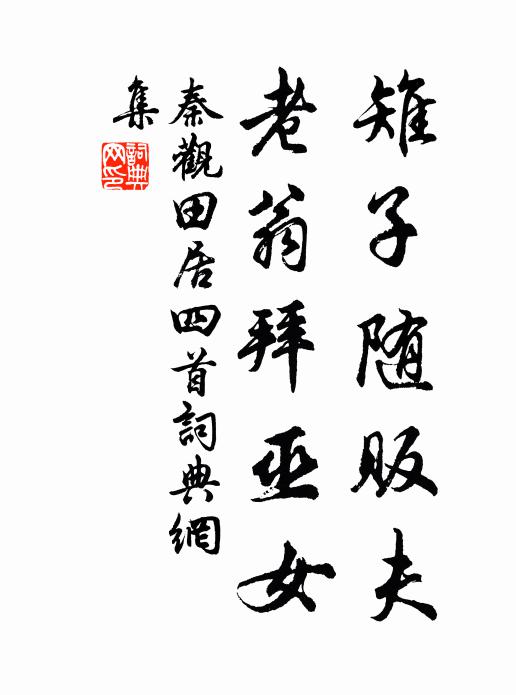 雉子随販夫
老翁拜巫女
秦觀田居四首詞典網
集
詞典
网印